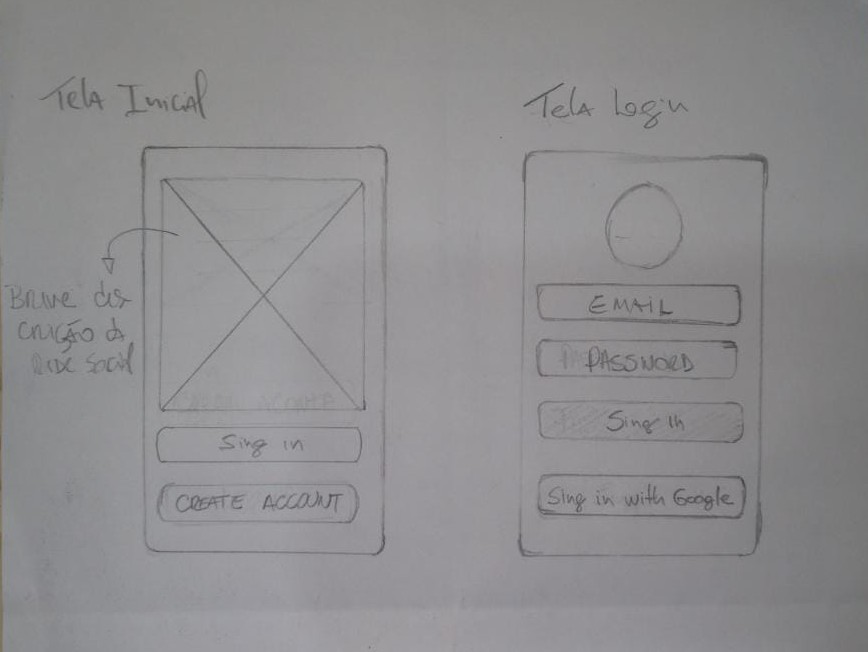 Tela Inicial
Breve des
crição da
rede social
Sing in
CREATE ACCOUNT
Tela Login
EMAIL
PASSWORD
Sing in
Sing in with Google